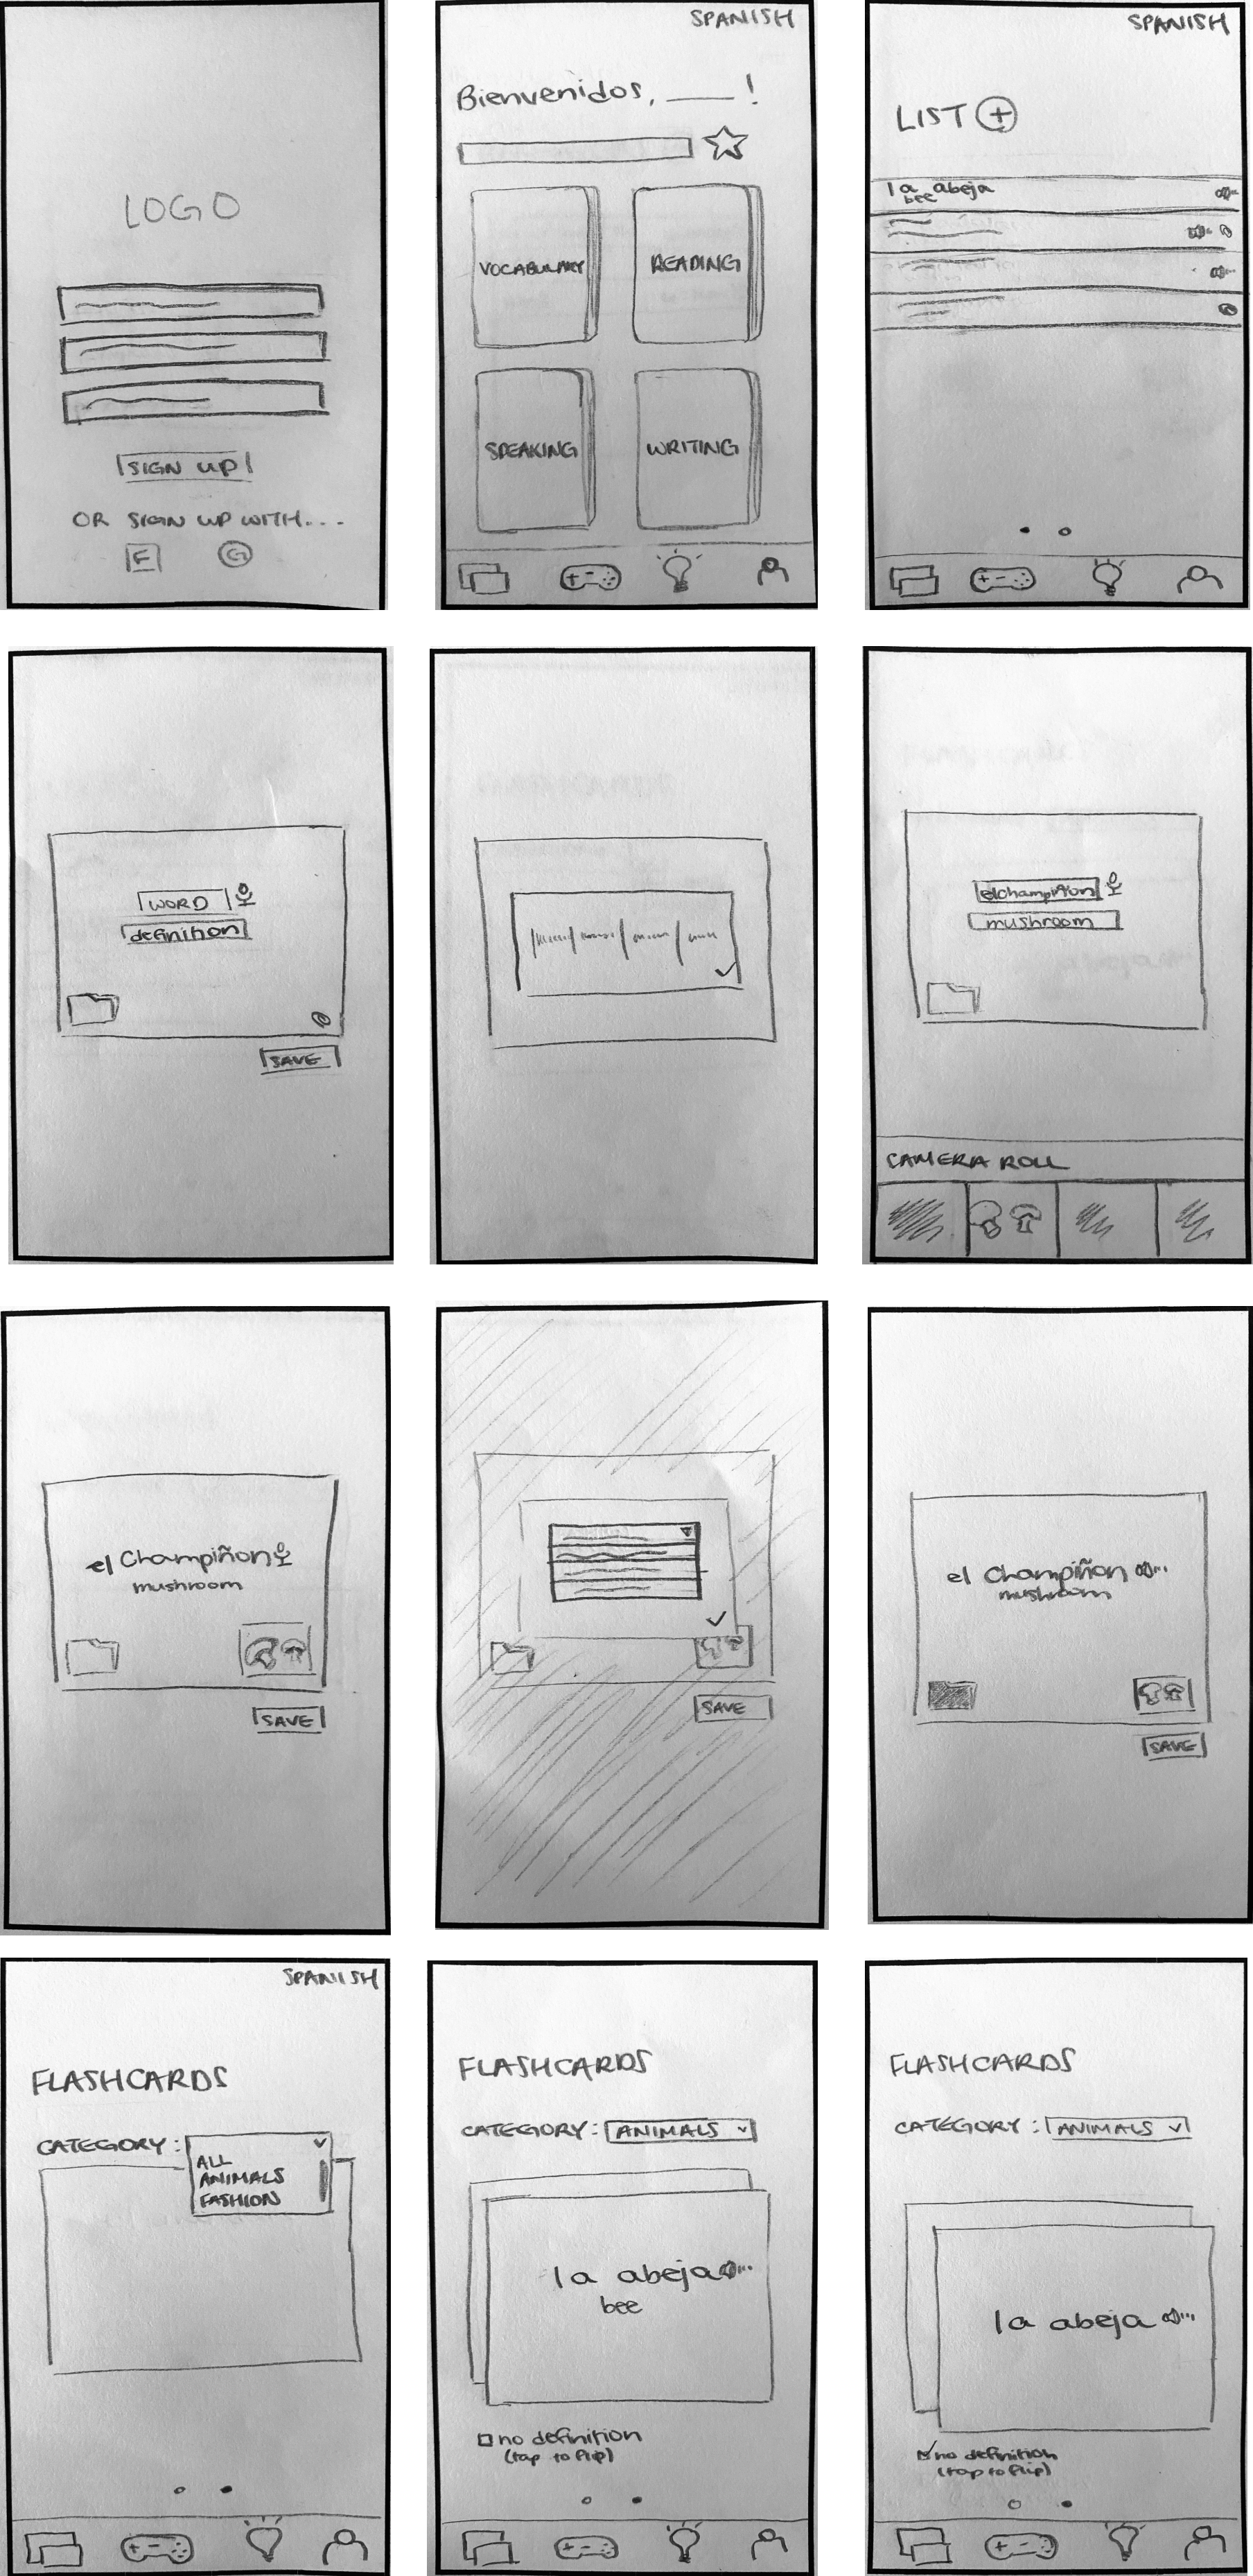 LOGO
SIGN UP
OR SIGN UP WITH...
F G
SPANISH
Bienvenidos, ___!
VOCABULARY
READING
SPEAKING
WRITING
SPANISH
LIST +
la abeja
bee
WORD
definition
SAVE
el champiñon
mushroom
CAMERA ROLL
el champiñon
mushroom
SAVE
SAVE
el champiñon
mushroom
SAVE
SPANISH
FLASHCARDS
CATEGORY:
ALL
ANIMALS
FASHION
FLASHCARDS
CATEGORY: ANIMALS
la abeja
bee
no definition
(tap to flip)
FLASHCARDS
CATEGORY: ANIMALS
la abeja
no definition
(tap to flip)